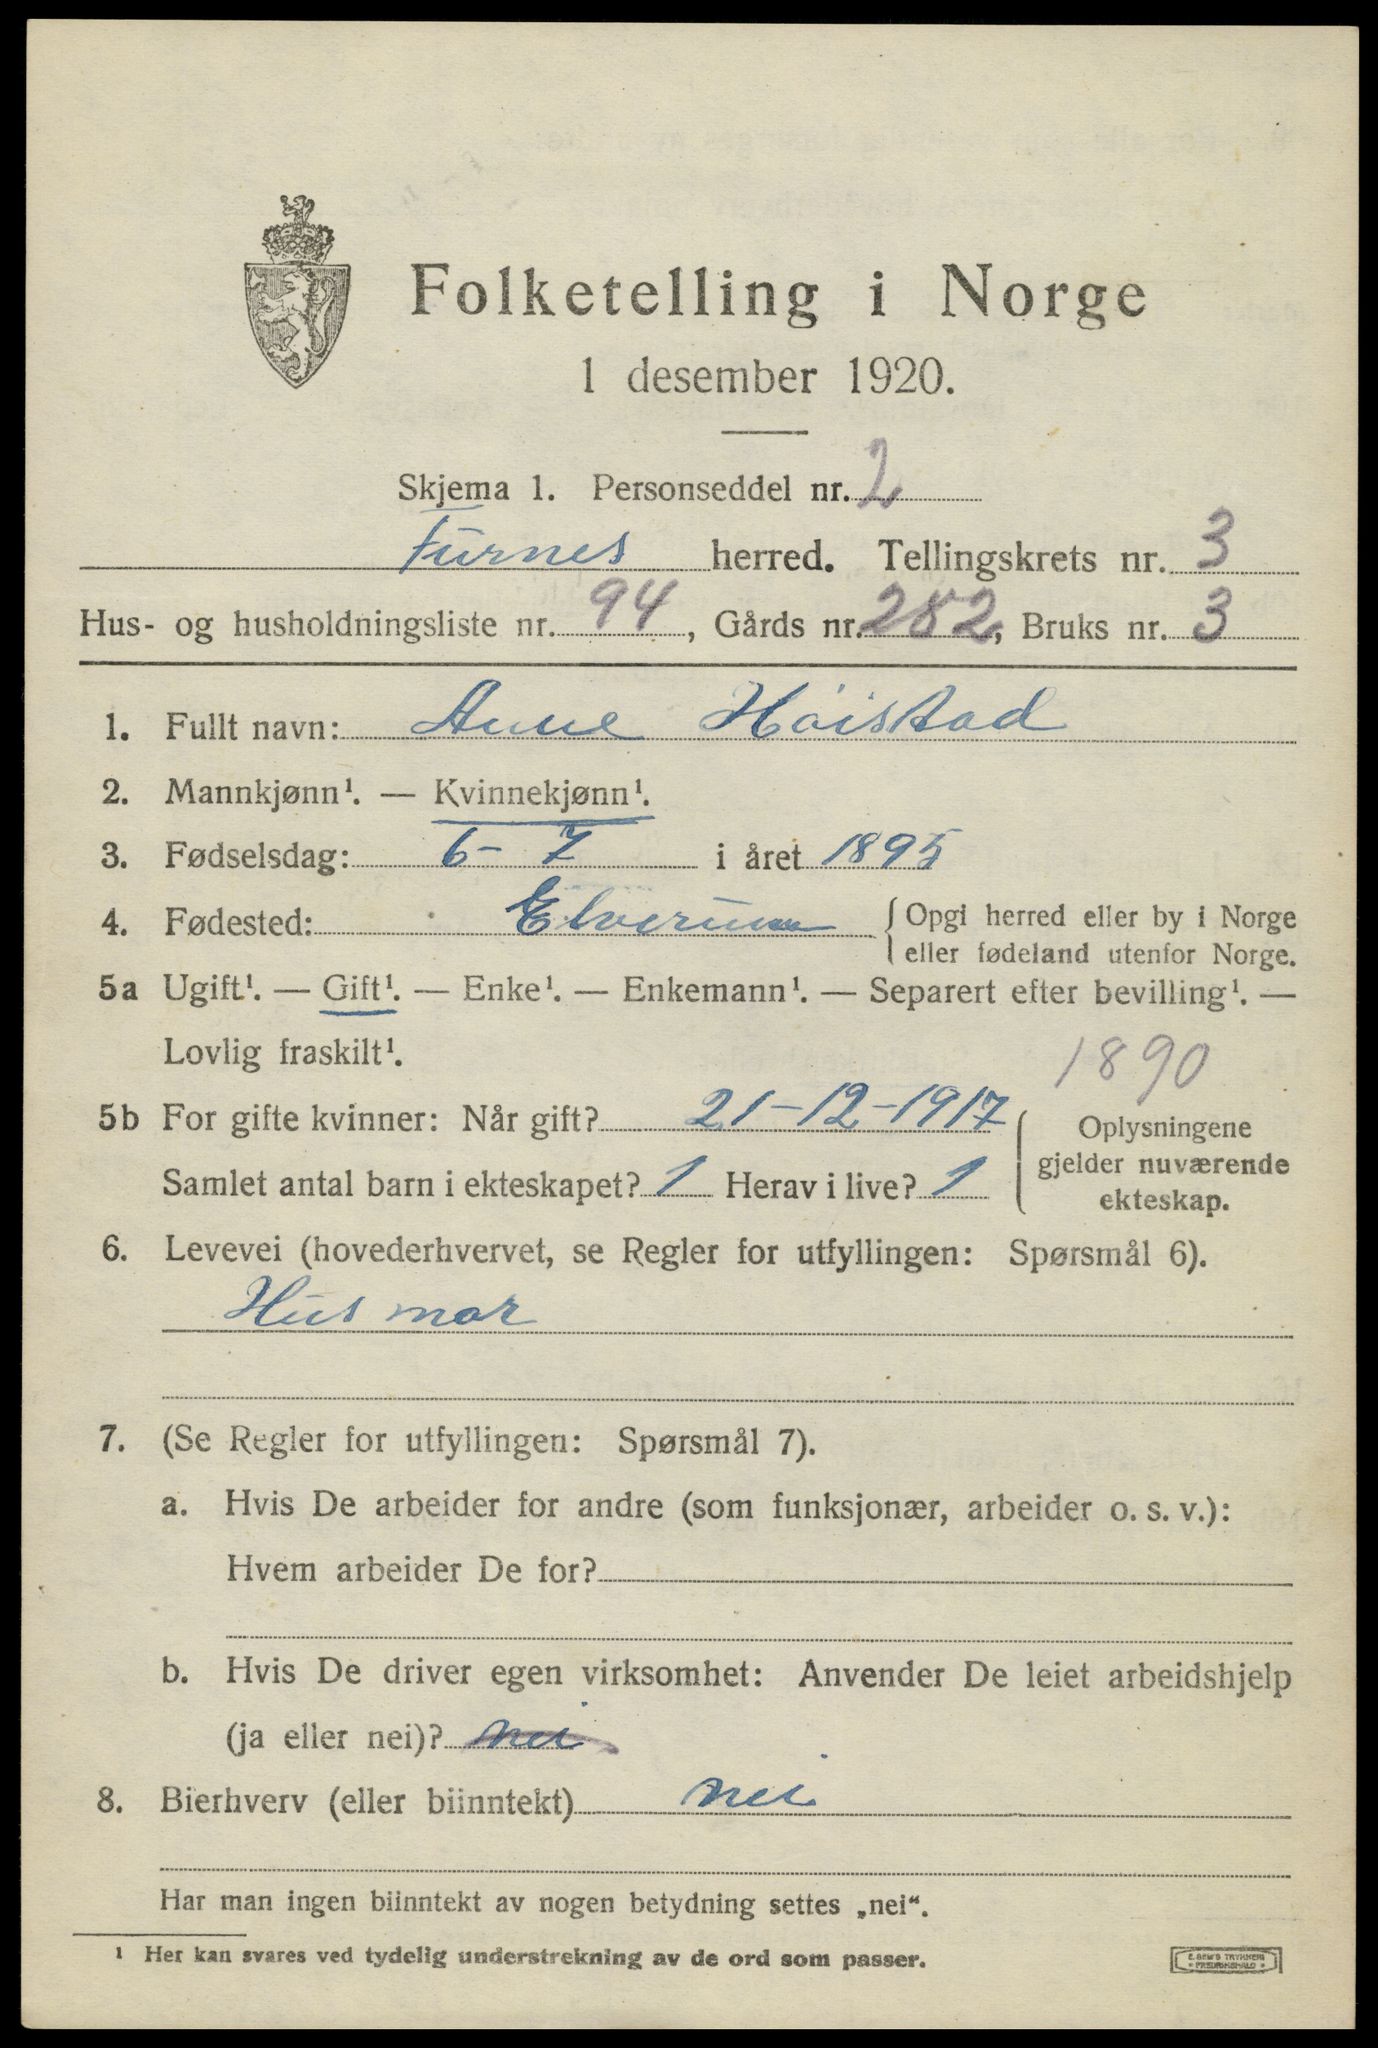 Folketelling i Norge
1 desember 1920.
Skjema 1. Personseddel nr. 2
Furnes herred. Tellingskrets nr. 3
Hus- og husholdningsliste nr. 94, Gårds nr. 282, Bruks nr. 3
1. Fullt navn: Anne Höistad
2. Mannkjønn¹. — Kvinnekjønn¹.
3. Fødselsdag: 6 - 7 i året 1895
4. Fødested: Elverum { Opgi herred eller by i Norge
eller fødeland utenfor Norge.
5a Ugift¹. — Gift¹. — Enke¹. — Enkemann¹. — Separert efter bevilling¹. —
Lovlig fraskilt¹.
1890
5b For gifte kvinner: Når gift? 21-12-1917
Samlet antal barn i ekteskapet? 1 Herav i live? 1
Oplysningene
gjelder nuværende
ekteskap.
6. Levevei (hovederhvervet, se Regler for utfyllingen: Spørsmål 6).
Husmor
7. (Se Regler for utfyllingen: Spørsmål 7).
a. Hvis De arbeider for andre (som funksjonær, arbeider o. s. v.):
Hvem arbeider De for?
b. Hvis De driver egen virksomhet: Anvender De leiet arbeidshjelp
(ja eller nei)? nei
8. Bierhverv (eller biinntekt) nei
Har man ingen biinntekt av nogen betydning settes „nei“.
¹ Her kan svares ved tydelig understrekning av de ord som passer.
E. SEM'S TRYKKERI
FREDRIKSHALD